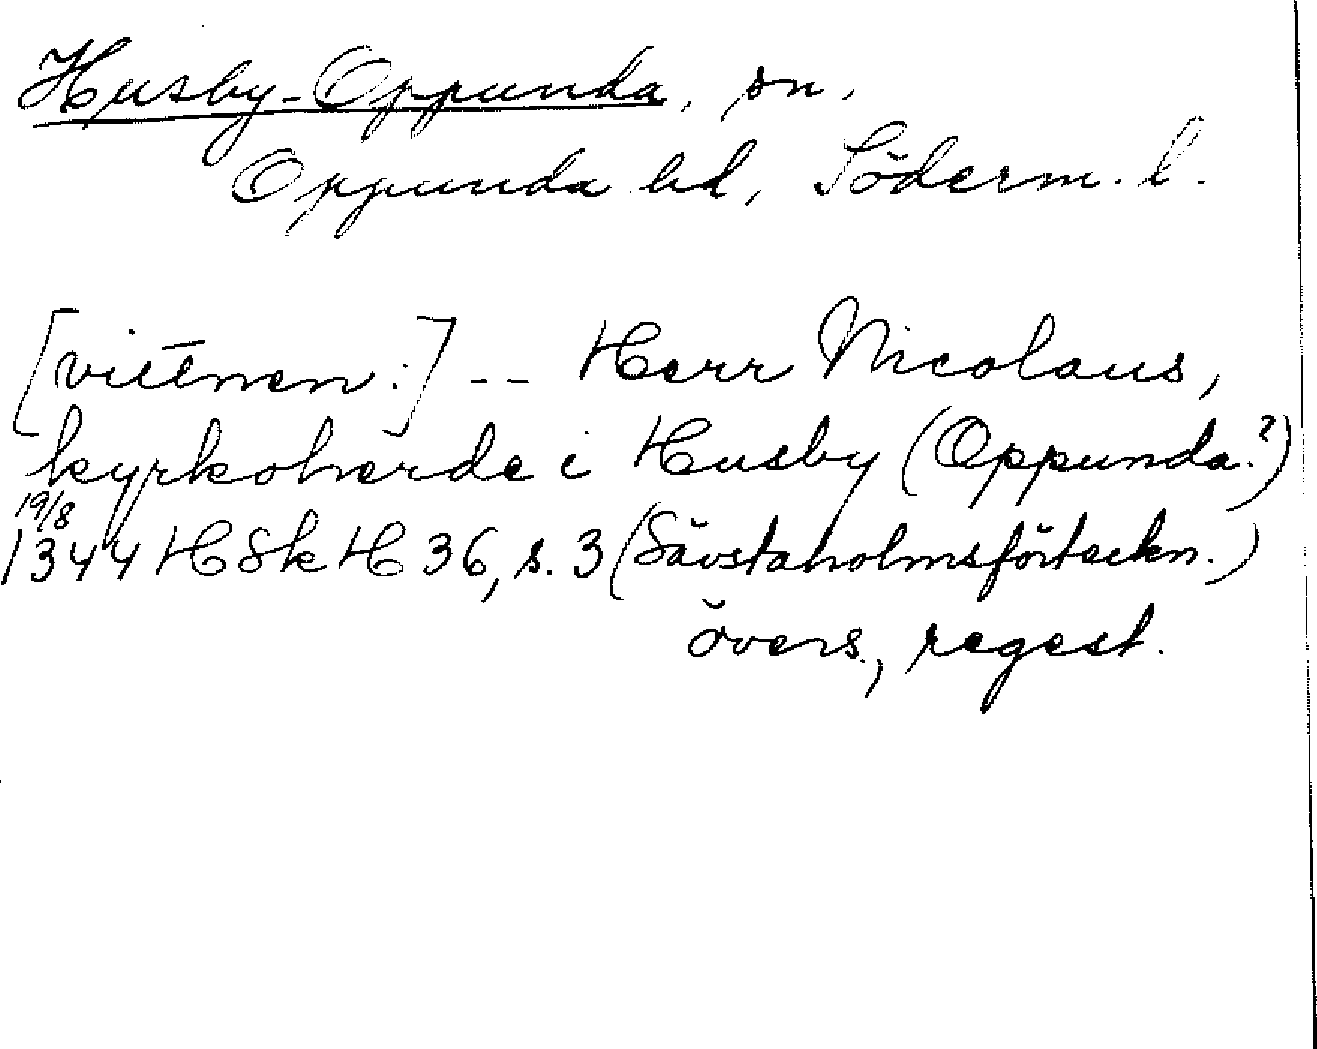 Husby-Oppunda, sn.
Oppunda hd, Söderm. l.
[vittnen:] -- Herr Nicolaus,
kyrkoherde i Husby (Oppunda?)
19/8
1344 HSk H 36, s. 3 (Sävstaholmsförteckn.)
övers., regest.